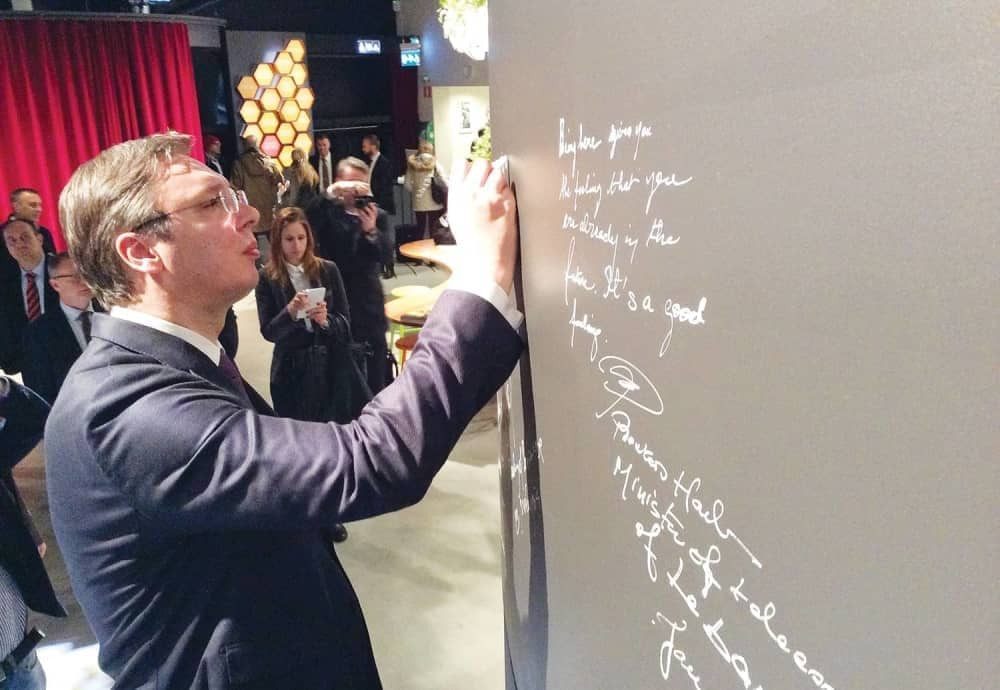 Being here gives you
the feeling that you
are already in the
future. It's a good
feeling.
Boutros Harb
Minister of telecom
of Leban
Jan